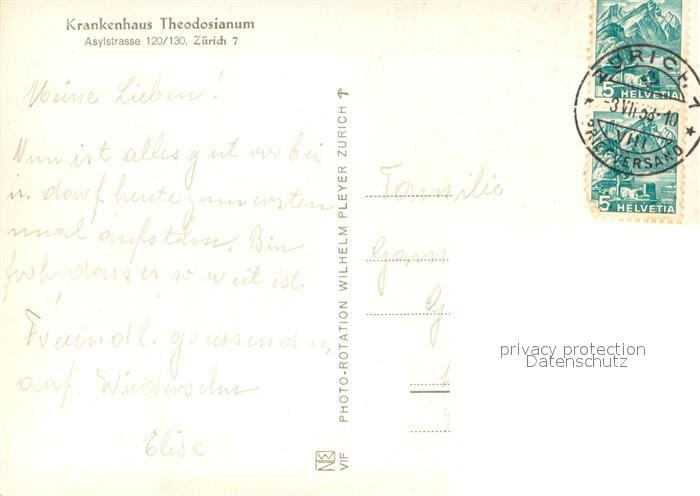 Krankenhaus Theodosianum
Asylstrasse 120/130, Zürich 7
Meine Lieben!
Nun ist alles gut vorbei
u. darf heute zum ersten
mal aufstehn. Bin
froh dass es so weit ist.
Freundl. grüssend u.
auf Wiedersehn
Elise
PHOTO-ROTATION WILHELM PLEYER ZURICH
VIF
Familie
5 HELVETIA
5 HELVETIA
ZÜRICH 7
VIII
BRIEFVERSAND
privacy protection
Datenschutz